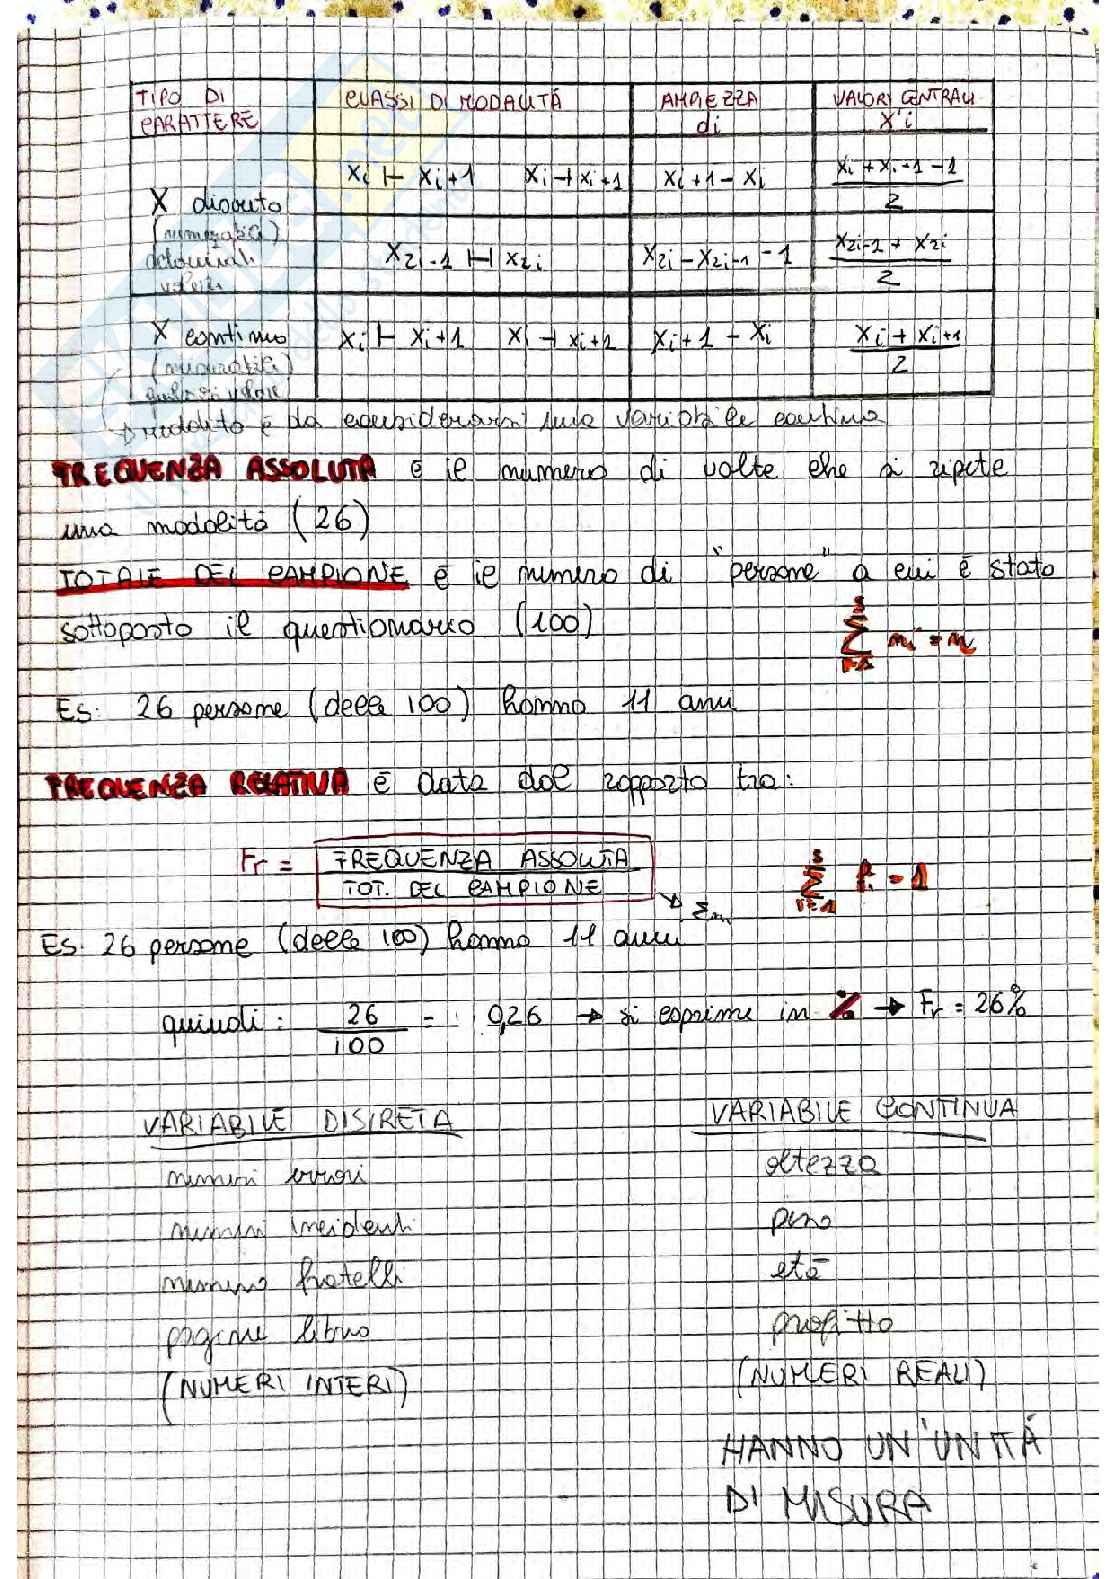 TIPO DI CARATTERE | CLASSI DI MODALITÁ | AMPIEZZA di | VALORI CENTRALI x'i
X discreto (numerabili) determinati valori | xi ⊢ xi+1   xi ⊣ xi+1 | xi+1 - xi | xi + xi+1 - 1 / 2
x2i-1 ⊢⊣ x2i | x2i - x2i-1 - 1 | x2i-1 + x2i / 2
X continuo (misurabili) qualsiasi valore | xi ⊢ xi+1   xi ⊣ xi+1 | xi+1 - xi | xi + xi+1 / 2
→ reddito è da considerarsi una variabile continua
FREQUENZA ASSOLUTA è il numero di volte che si ripete
una modalità (26)
TOTALE DEL CAMPIONE è il numero di "persone" a cui è stato
sottoposto il questionario (100)
s Σ i=1 ni = n
Es: 26 persone (delle 100) hanno 11 anni
FREQUENZA RELATIVA è data dal rapporto tra:
Fr = FREQUENZA ASSOLUTA / TOT. DEL CAMPIONE
→ Σn
s Σ i=1 fi = 1
Es. 26 persone (delle 100) hanno 11 anni
quindi: 26 / 100 = 0,26 → si esprime in % → Fr = 26%
VARIABILE DISCRETA
numeri errori
numeri incidenti
numero fratelli
pagine libro
(NUMERI INTERI)
VARIABILE CONTINUA
altezza
peso
età
profitto
(NUMERI REALI)
HANNO UN'UNITÁ
DI MISURA